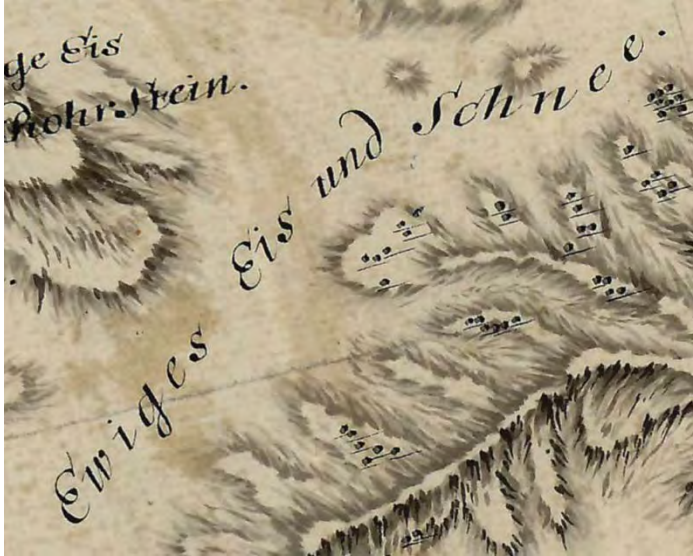 ge Eis
RohrStein.
Ewiges Eis und Schnee.